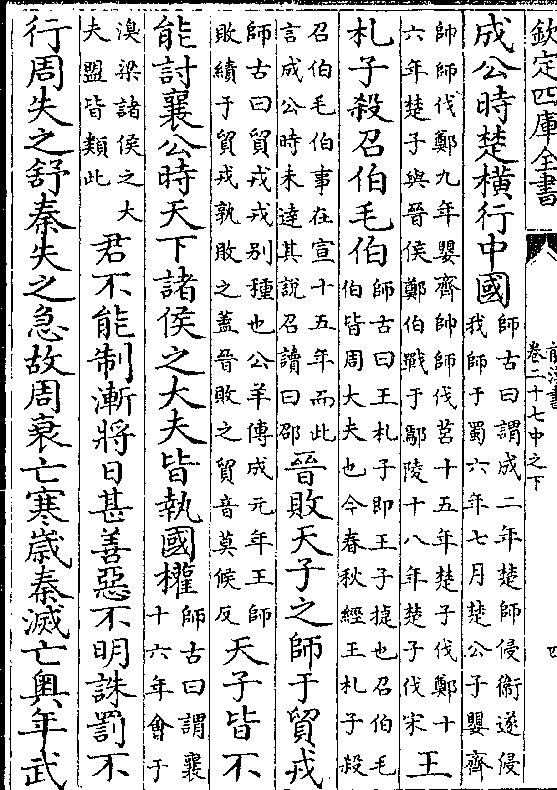 欽定四庫全書
前漢書
卷二十七中之下
四
成公時楚橫行中國
師古曰謂成二年楚師侵衛遂侵
我師于蜀六年七月楚公子嬰齊
帥師伐鄭九年嬰齊帥師伐莒十五年楚子伐鄭十
六年楚子與晉侯鄭伯戰于鄢陵十八年楚子伐宋
王
札子殺召伯毛伯
師古曰王札子即王子捷也召伯毛
伯皆周大夫也今春秋經王札子殺
召伯毛伯事在宣十五年而此
言成公時未達其說召讀曰邵
晉敗天子之師于貿戎
師古曰貿戎戎别種也公羊傳成元年王師
敗績于貿戎孰敗之蓋晉敗之貿音莫候反
天子皆不
能討襄公時天下諸侯之大夫皆執國權
師古曰謂襄
十六年會于
湨梁諸侯之大
夫盟皆類此
君不能制漸將日甚善惡不明誅罰不
行周失之舒秦失之急故周衰亡寒歲秦滅亡奧年武